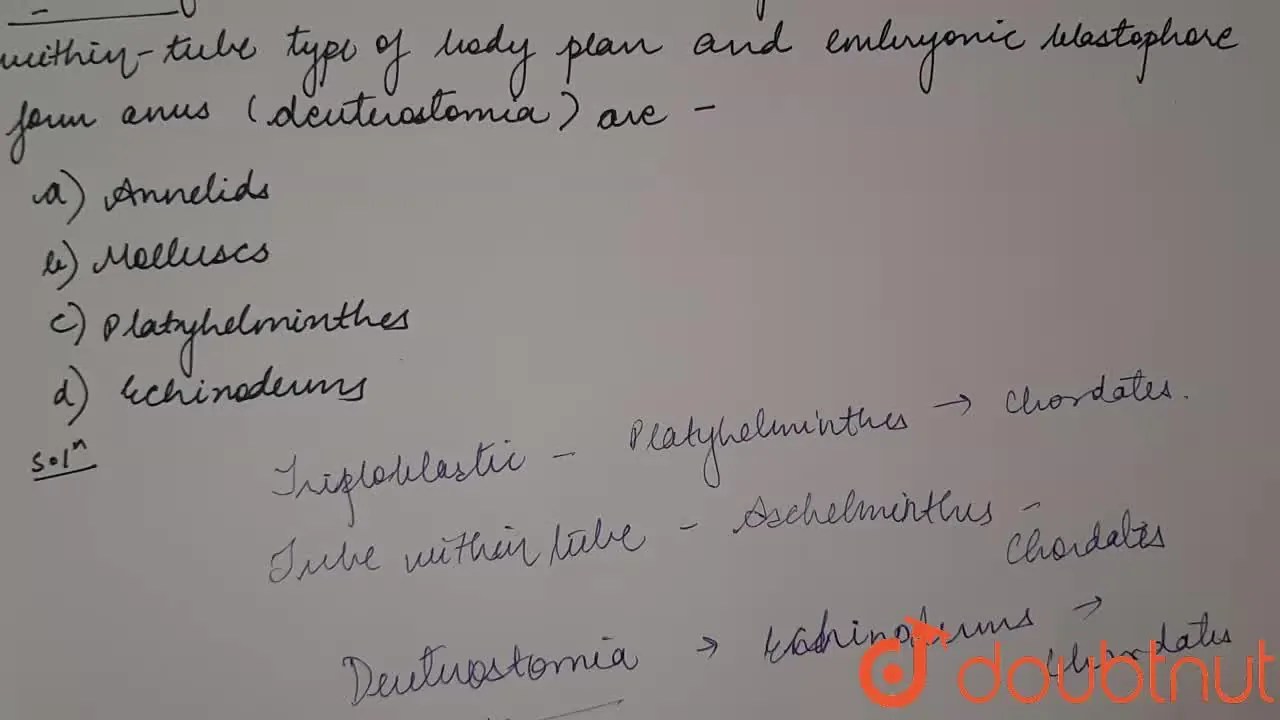 within-tube type of body plan and embryonic blastophore
form anus (deuterostomia) are -
a) Annelids
b) Molluscs
c) Platyhelminthes
d) Echinoderms
Solⁿ
Triploblastic - Platyhelminthes → Chordates.
Tube within tube - Aschelminthes -
Chordates
Deuterostomia → Echinoderms →
Chordates
doubtnut